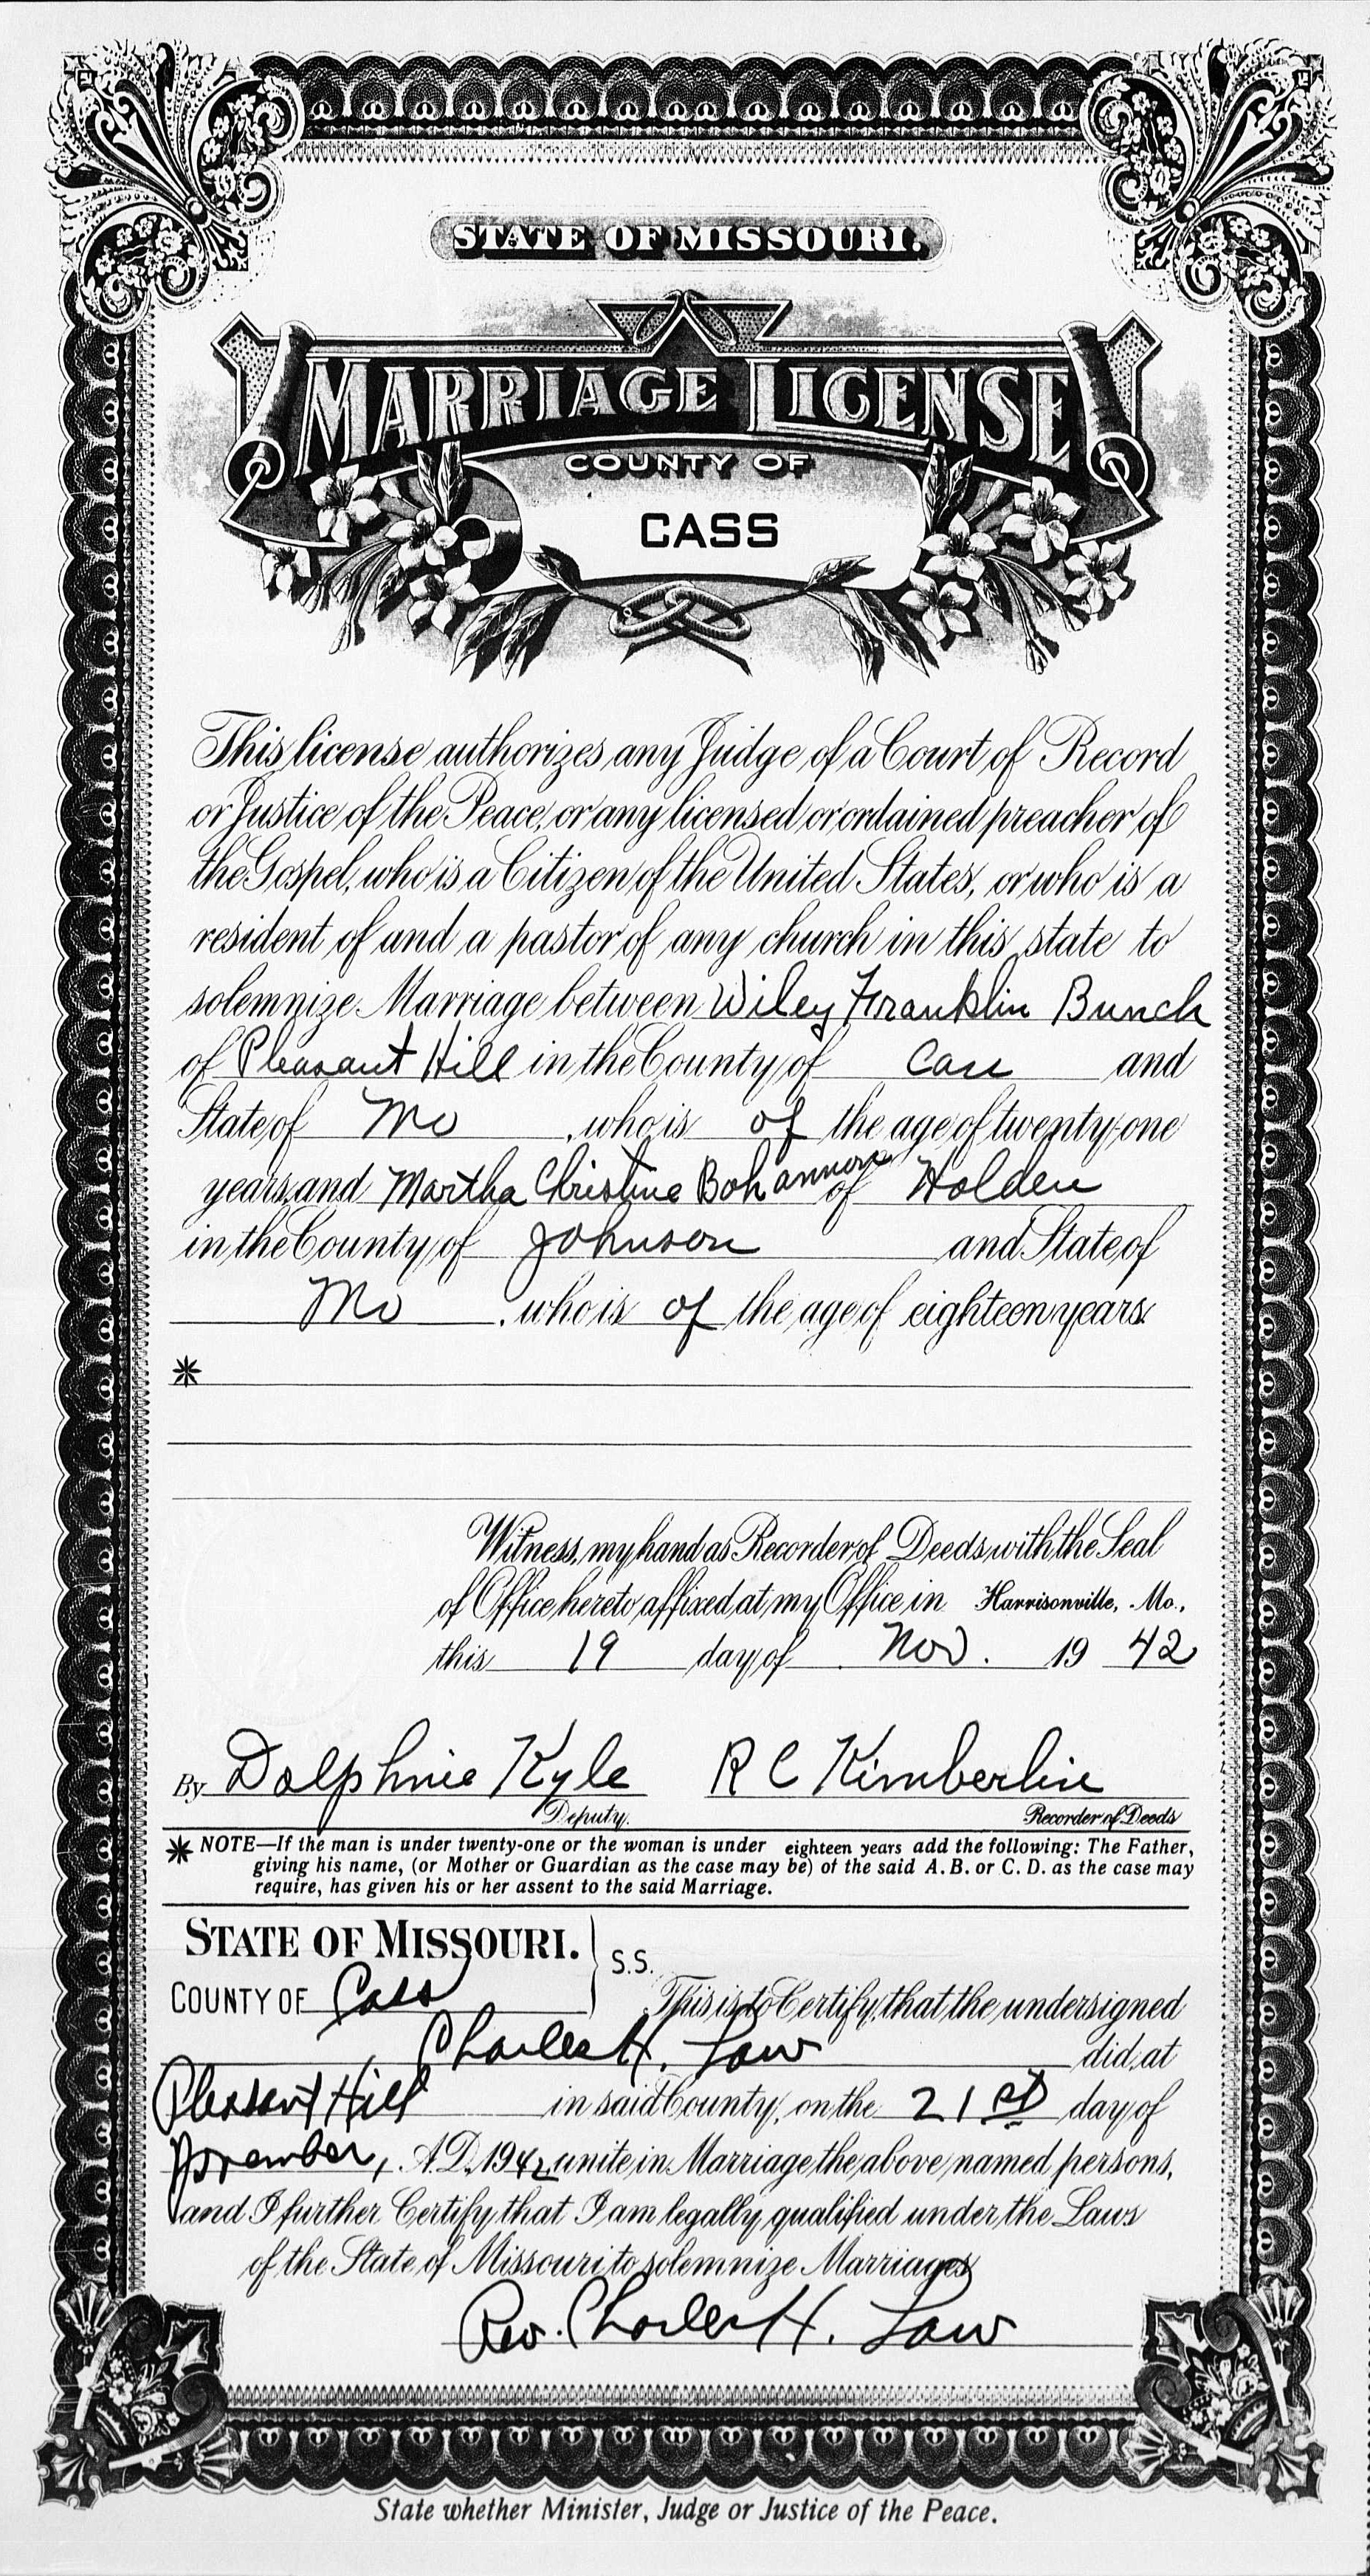 STATE OF MISSOURI.
MARRIAGE LICENSE
COUNTY OF
CASS
This license authorizes any Judge of a Court of Record
or Justice of the Peace, or any licensed or ordained preacher of
the Gospel, who is a Citizen of the United States, or who is a
resident of and a pastor of any church in this state to
solemnize Marriage between Wiley Franklin Bunch
of Pleasant Hill in the County of Cass and
State of Mo , who is of the age of twenty-one
years, and Martha Christine Bohannon of Holden
in the County of Johnson and State of
Mo , who is of the age of eighteen years.
*
Witness, my hand as Recorder of Deeds with the Seal
of Office hereto affixed at my Office in Harrisonville, Mo.,
this 19 day of Nov. 19 42
By Dolphnie Kyle R C Kimberlin
Deputy. Recorder of Deeds
* NOTE—If the man is under twenty-one or the woman is under eighteen years add the following: The Father,
giving his name, (or Mother or Guardian as the case may be) of the said A. B. or C. D. as the case may
require, has given his or her assent to the said Marriage.
STATE OF MISSOURI. } S.S.
COUNTY OF Cass
This is to Certify, that the undersigned
Charles H. Law did, at
Pleasant Hill in said County, on the 21st day of
November, A.D. 1942 unite in Marriage the above named persons,
and I further Certify that I am legally qualified under the Laws
of the State of Missouri to solemnize Marriages
Rev. Charles H. Law
State whether Minister, Judge or Justice of the Peace.